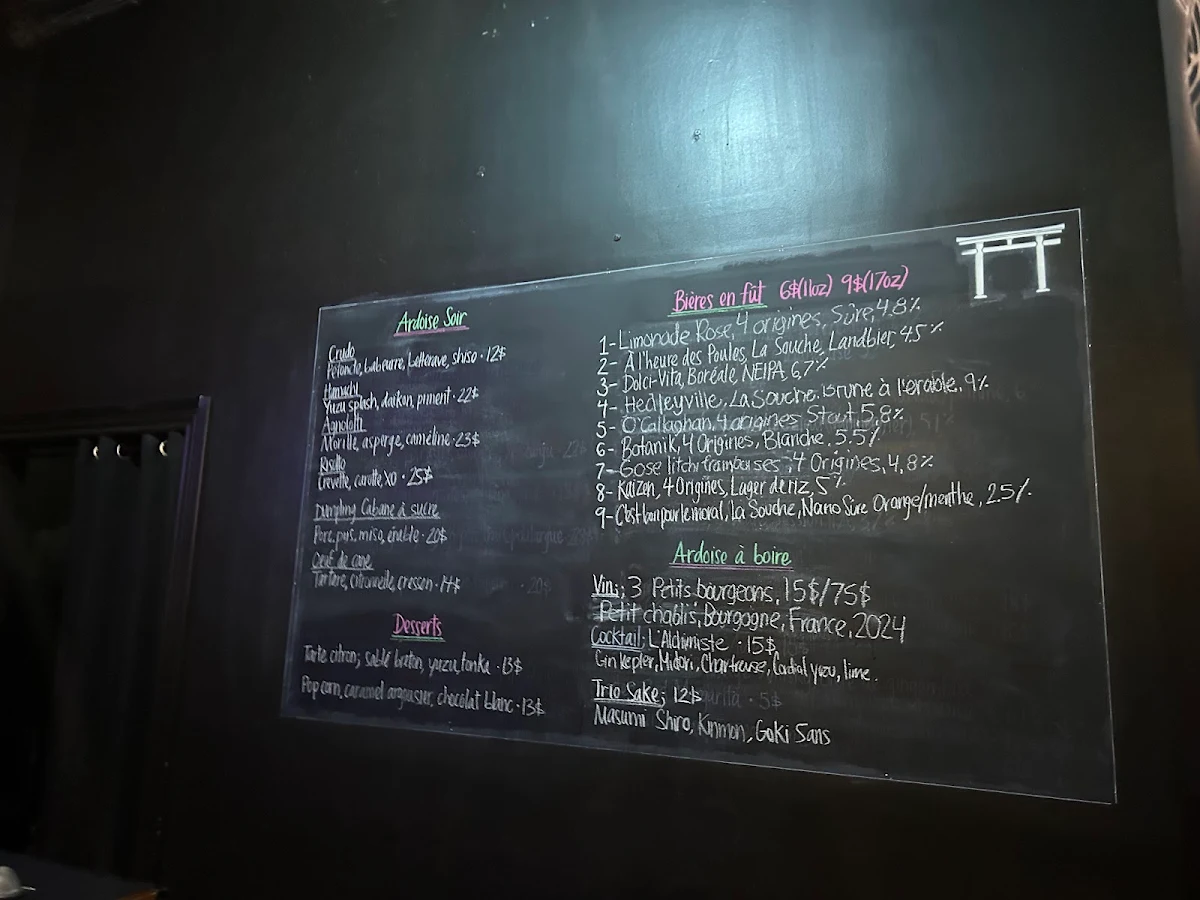 Ardoise Soir
Crudo
Pétoncle, babeurre, betterave, shiso · 12$
Hamachi
Yuzu splash, daikon, piment · 22$
Agnolotti
Morille, asperge, caméline · 23$
Risotto
Crevette, carotte XO · 25$
Dumpling Cabane à sucre
Porc, pois, miso, érable · 20$
Oeuf de cane
Tartare, citronnelle, cresson · 14$
Desserts
Tarte citron; sablé breton, yuzu, tonka · 13$
Pop corn, caramel argousier, chocolat blanc · 13$
Bières en fût 6$(11oz) 9$(17oz)
1- Limonade Rose, 4 origines, Sûre, 4.8%
2- À l'heure des Poules, La Souche, Landbier, 4.5%
3- Dolci-Vita, Boréale, NEIPA, 6,7%
4- Hedleyville, La Souche, Brune à l'érable, 9%
5- O'Callaghan, 4 origines, Stout, 5,8%
6- Botanik, 4 Origines, Blanche, 5.5%
7- Gose litchi framboises, 4 Origines, 4,8%
8- Kaizen, 4 Origines, Lager de riz, 5%
9- C'est bon pour le moral, La Souche, Nano Sûre Orange/menthe, 2.5%
Ardoise à boire
Vin; 3 Petits bourgeons, 15$/75$
Petit chablis, Bourgogne, France, 2024
Cocktail; L'Alchimiste · 15$
Gin kepler, Midori, Chartreuse, Cordial yuzu, lime.
Trio Sake; 12$
Masumi Shiro, Kinmon, Goki Sans